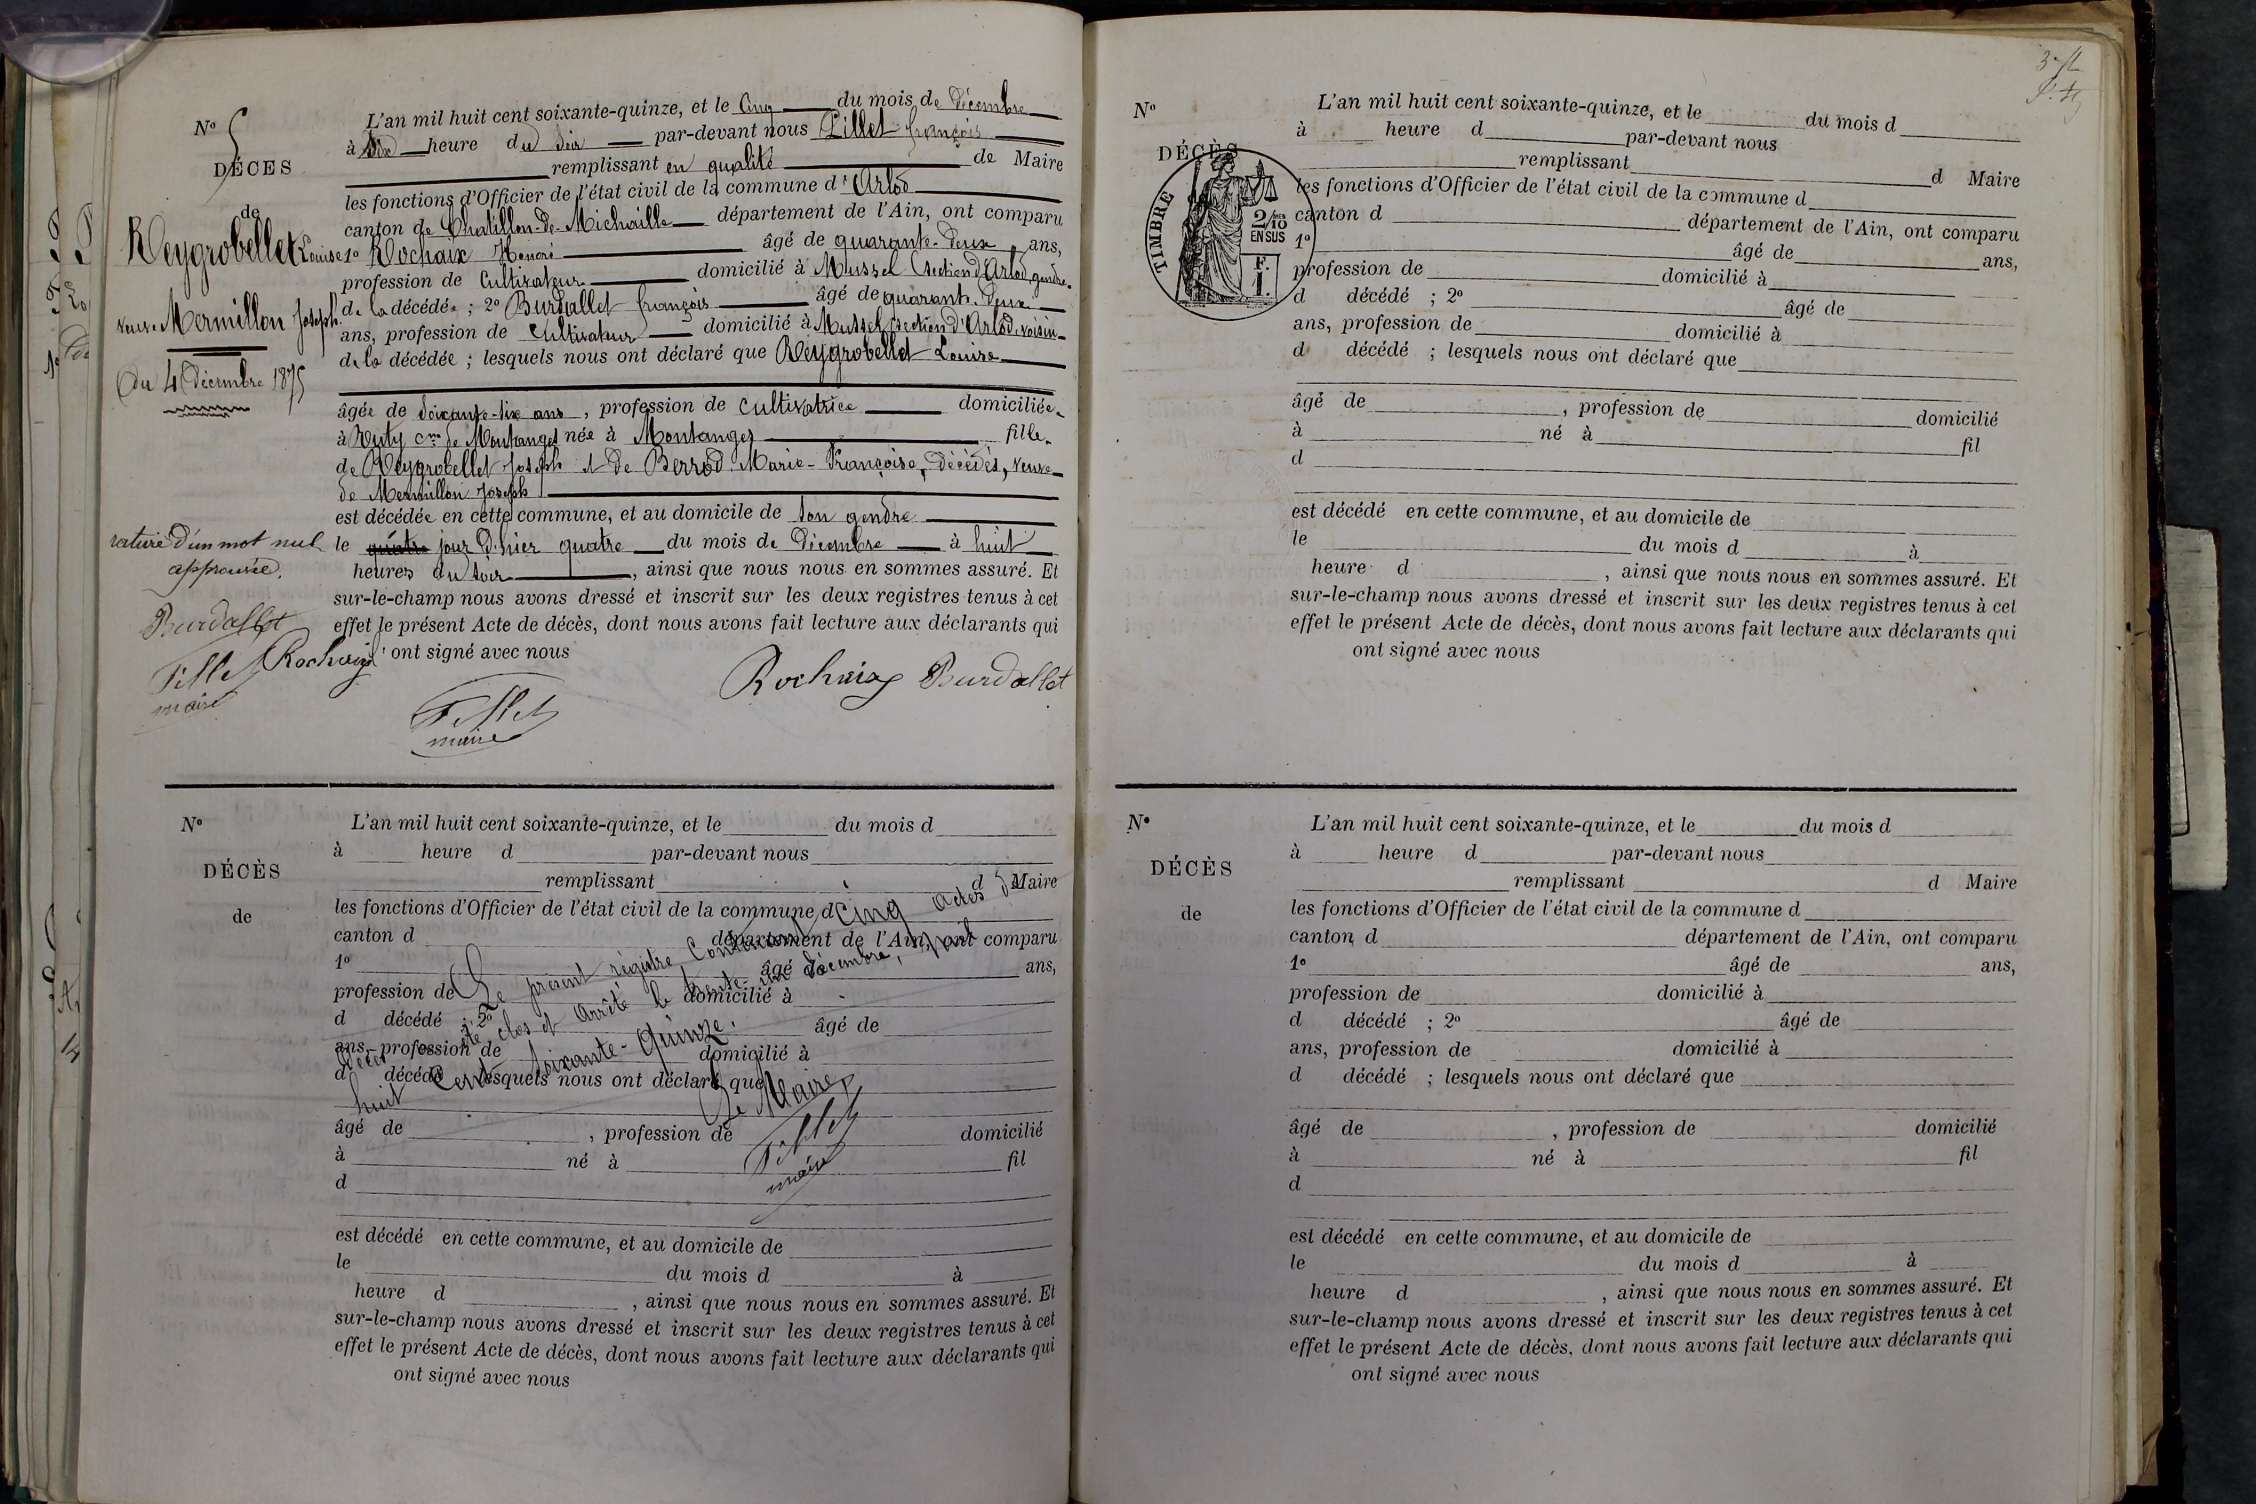 Nº 5
DÉCES
de
Reygrobellet Louise
veuve Mermillon Joseph.
du 4 décembre 1875
L'an mil huit cent soixante-quinze, et le Cinq du mois de décembre
à Six heure du soir par-devant nous Pillet françois
remplissant en qualité de Maire
les fonctions d'Officier de l'état civil de la commune d'Arlod
canton de Chatillon-de-Michaille département de l'Ain, ont comparu
1º Rochaix Honoré âgé de quarante-deux ans,
profession de Cultivateur domicilié à Mussel (section d'Arlod, gendre
de la décédée ; 2º Burdallet françois âgé de quarante-deux
ans, profession de Cultivateur domicilié à Mussel section d'Arlod, voisin
de la décédée ; lesquels nous ont déclaré que Reygrobellet Louise
âgée de soixante-six ans, profession de Cultivatrice domiciliée
à Ruty cne de Montanges née à Montanges fille
de Reygrobellet Joseph et de Berrod Marie-Françoise, décédés, veuve
de Mermillon Joseph
est décédée en cette commune, et au domicile de son gendre
le quatre jour d'hier quatre du mois de Décembre à huit
heures du soir, ainsi que nous nous en sommes assuré. Et
sur-le-champ nous avons dressé et inscrit sur les deux registres tenus à cet
effet le présent Acte de décès, dont nous avons fait lecture aux déclarants qui
ont signé avec nous
rature d'un mot nul
approuvée.
Burdallet
Rochaix
Pillet
maire
Rochaix Burdallet
Pillet
maire
Nº
DÉCÈS
de
L'an mil huit cent soixante-quinze, et le du mois d
à heure d par-devant nous
remplissant d Maire
les fonctions d'Officier de l'état civil de la commune d
canton d département de l'Ain, ont comparu
1º âgé de ans,
profession de domicilié à
d décédé ; 2º âgé de
ans, profession de domicilié à
d décédé ; lesquels nous ont déclaré que
âgé de , profession de domicilié
à né à fil
d
est décédé en cette commune, et au domicile de
le du mois d à
heure d , ainsi que nous nous en sommes assuré. Et
sur-le-champ nous avons dressé et inscrit sur les deux registres tenus à cet
effet le présent Acte de décès, dont nous avons fait lecture aux déclarants qui
ont signé avec nous
Le présent régistre Contenant cinq actes de
décès a été clos et arrêté le trente-un décembre, mil
huit Cent soixante-Quinze.
Le Maire,
Pillet
maire
Nº
DÉCÈS
TIMBRE
2/10
EN SUS
F.
1.
L'an mil huit cent soixante-quinze, et le du mois d
à heure d par-devant nous
remplissant d Maire
les fonctions d'Officier de l'état civil de la commune d
canton d département de l'Ain, ont comparu
1º âgé de ans,
profession de domicilié à
d décédé ; 2º âgé de
ans, profession de domicilié à
d décédé ; lesquels nous ont déclaré que
âgé de , profession de domicilié
à né à fil
d
est décédé en cette commune, et au domicile de
le du mois d à
heure d , ainsi que nous nous en sommes assuré. Et
sur-le-champ nous avons dressé et inscrit sur les deux registres tenus à cet
effet le présent Acte de décès, dont nous avons fait lecture aux déclarants qui
ont signé avec nous
Nº
DÉCÈS
de
L'an mil huit cent soixante-quinze, et le du mois d
à heure d par-devant nous
remplissant d Maire
les fonctions d'Officier de l'état civil de la commune d
canton d département de l'Ain, ont comparu
1º âgé de ans,
profession de domicilié à
d décédé ; 2º âgé de
ans, profession de domicilié à
d décédé ; lesquels nous ont déclaré que
âgé de , profession de domicilié
à né à fil
d
est décédé en cette commune, et au domicile de
le du mois d à
heure d , ainsi que nous nous en sommes assuré. Et
sur-le-champ nous avons dressé et inscrit sur les deux registres tenus à cet
effet le présent Acte de décès, dont nous avons fait lecture aux déclarants qui
ont signé avec nous